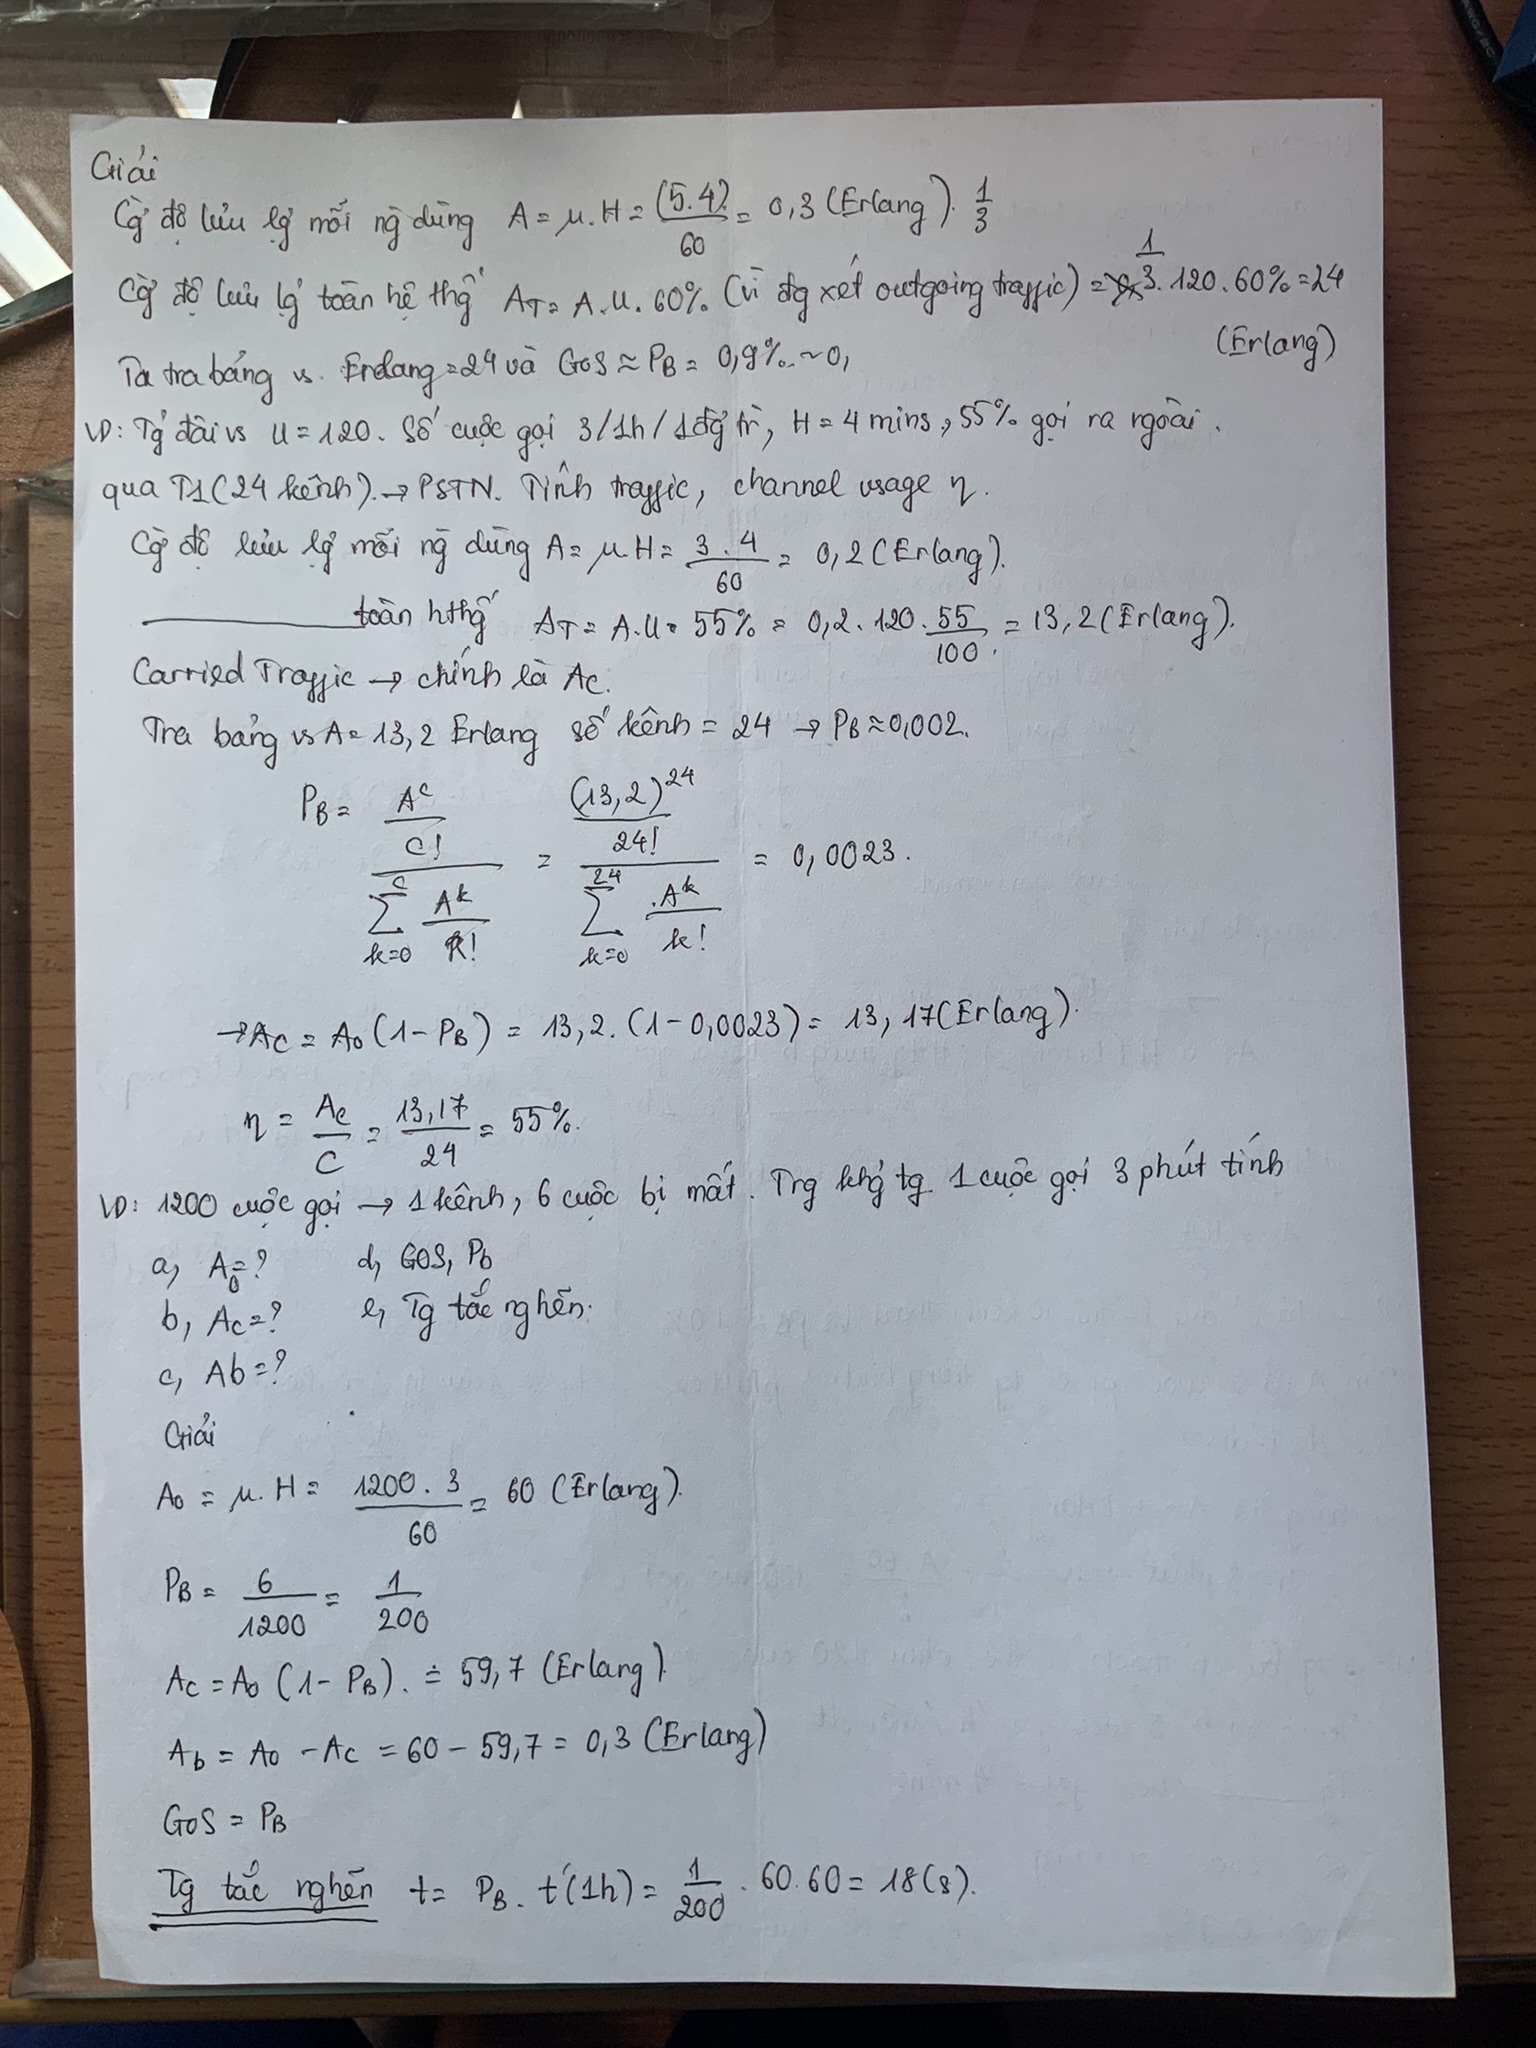 Giải
Cg` độ lưu lg' mỗi ng` dùng A = μ.H = (5.4)/60 = 0,3 (Erlang). 1/3
Cg` độ lưu lg' toàn hệ thg' AT = A.U.60% (vì đg xét outgoing traffic) = 1/3.120.60% = 24
(Erlang)
Ta tra bảng vs. Erlang = 24 và GoS ≈ PB = 0,9% ~ 0,
VD: Tg' đài vs U = 120. Số cuộc gọi 3/1h/1đg` tr`, H = 4 mins, 55% gọi ra ngoài.
qua T1 (24 kênh). → PSTN. Tính traffic, channel usage η.
Cg` độ lưu lg' mỗi ng` dùng A = μ.H = 3.4/60 = 0,2 (Erlang).
toàn hthg' AT = A.U.55% = 0,2.120.55/100 = 13,2 (Erlang).
Carried Traffic → chính là Ac.
Tra bảng vs A = 13,2 Erlang số kênh = 24 → PB ≈ 0,002.
PB = (A^c/C!)/(∑_{k=0}^{c} A^k/k!) = ((13,2)^24/24!)/(∑_{k=0}^{24} A^k/k!) = 0,0023.
→ Ac = Ao (1 - PB) = 13,2. (1 - 0,0023) = 13,17 (Erlang).
η = Ac/C = 13,17/24 = 55%.
VD: 1200 cuộc gọi → 1 kênh, 6 cuộc bị mất. Trg khg' tg 1 cuộc gọi 3 phút tính
a, Ao = ? d, GOS, Pb
b, Ac = ? e, Tg tắc nghẽn.
c, Ab = ?
Giải
Ao = μ.H = 1200.3/60 = 60 (Erlang).
PB = 6/1200 = 1/200
Ac = Ao (1 - PB). = 59,7 (Erlang).
Ab = Ao - Ac = 60 - 59,7 = 0,3 (Erlang)
GoS = PB
Tg tắc nghẽn t = PB. t'(1h) = 1/200 . 60.60 = 18 (s).